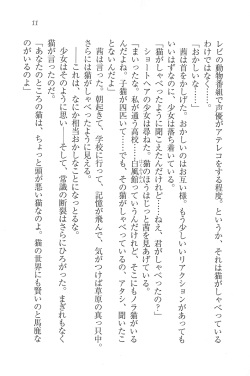 11
レビの動物番組で声優がアテレコをする程度。というか、それは猫がしゃべっている
わけではなく……。
「おかしいな……」
茜は首をかしげた。おかしいのはお互い様。もう少しいいリアクションがあっても
いいはずなのに、少女は落ち着いている。
「猫がしゃべったように聞こえたんだけれど……ねえ、君がしゃべったの？」
ショートヘアの少女は尋ねた。猫のほうはじっと茜を見あげている。
「まいったな。私が通う高校……白凰館っていうんだけれど、そこにもノラ猫がいる
んだよね。子猫が四匹いて……でも、その猫がしゃべっているの、アタシ、聞いたこ
とないんだよ」
茜は言った。朝起きて、学校に行って、記憶が飛んで、気がつけば草原の真っ只中。
さらには猫がしゃべったように見える。
――これは、なにか相当おかしなことになっている。
少女はそのように思い――そして、常識の断裂はさらにひろがった。まぎれもなく
猫が言ったのだ。
「あなたのところの猫は、ちょっと頭が悪い猫なのよ。猫の世界にも賢いのと馬鹿な
のがいるのよ」